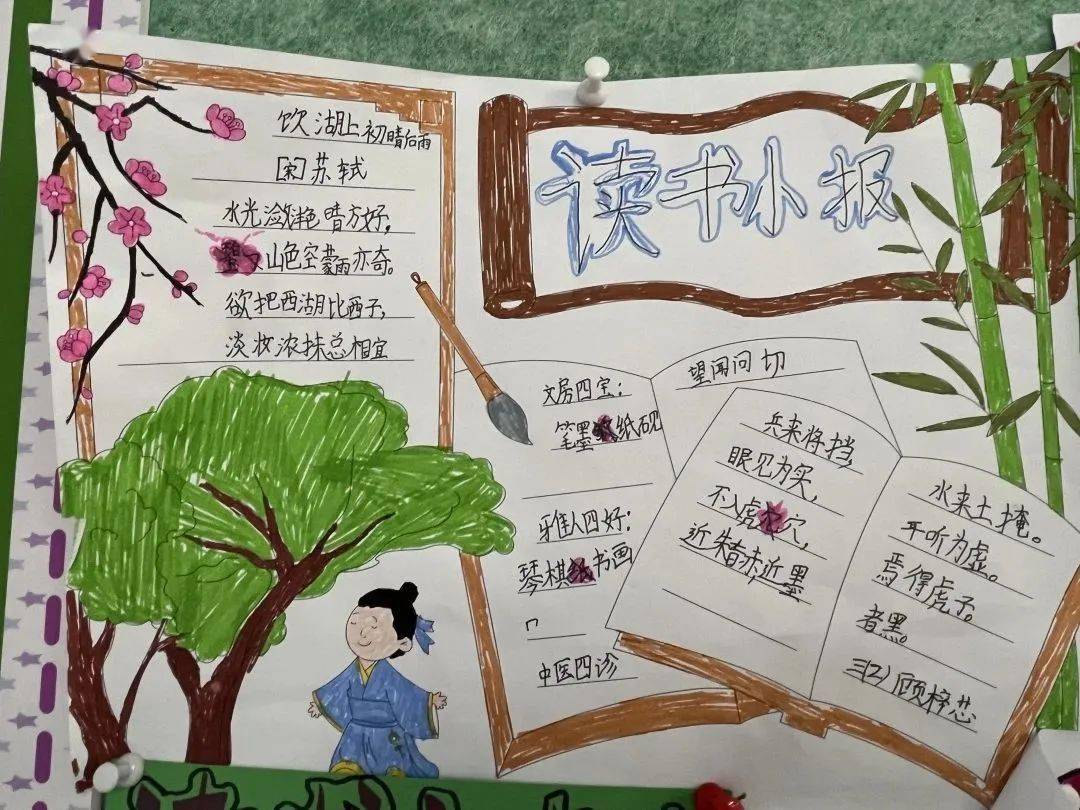 读书小报
饮湖上初晴后雨
[宋]苏轼
水光潋滟晴方好,
山色空蒙雨亦奇。
欲把西湖比西子,
淡妆浓抹总相宜
文房四宝:
笔墨纸砚
雅人四好:
琴棋书画
中医四诊
望闻问切
兵来将挡,
眼见为实,
不入虎穴,
近朱者赤,近墨
水来土掩。
平听为虚。
焉得虎子。
者黑。
三(2)顾梓芯